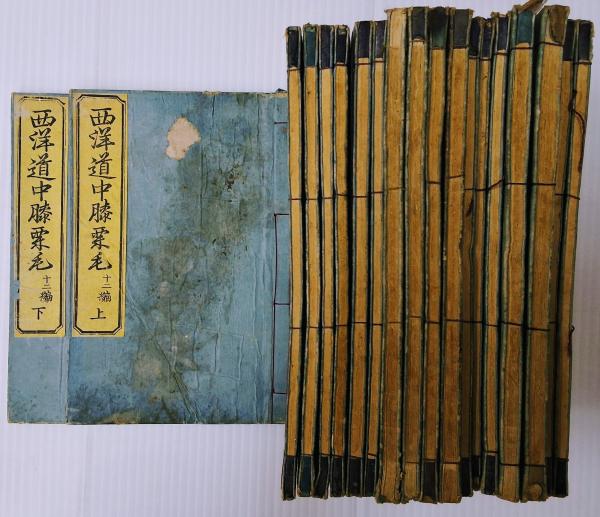 西洋道中膝栗毛 十二編 上
西洋道中膝栗毛 十二編 下